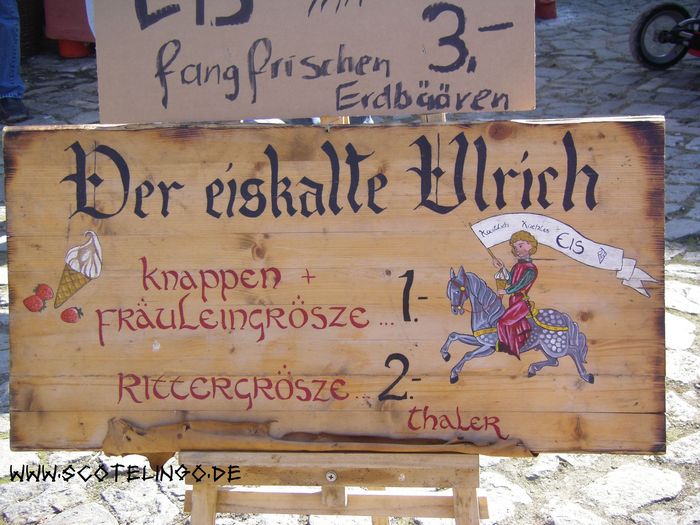 Eis
fangfrischen 3.-
Erdbäären
Der eiskalte Ulrich
Köstlich Kühles EIS
knappen +
FRÄULEINGRÖSZE ... 1.-
RITTERGRÖSZE ... 2.-
thaler
WWW.SCOTELINGO.DE